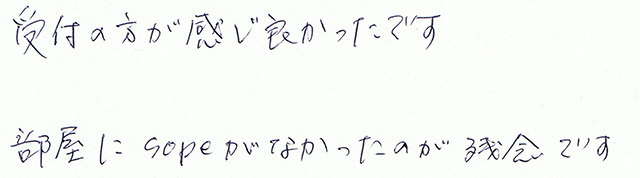 受付の方が感じ良かったです
部屋にsopeがなかったのが残念です